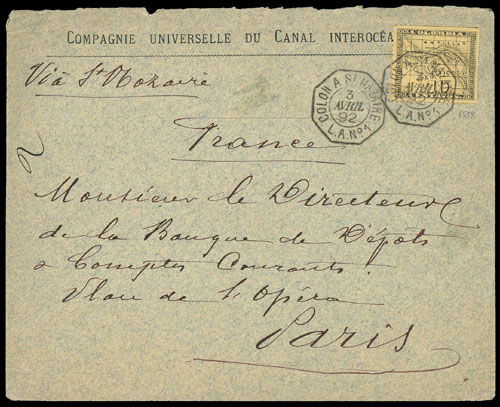 COMPAGNIE UNIVERSELLE DU CANAL INTEROCÉA
Viâ St Nazaire
COLON A ST NAZAIRE
3
AVRIL
92
L.A. No 1
COLOMBIA
10
AVRIL
L.A. No 1
1588
2
France
Monsieur le Directeur
de la Banque de Dépôts
& Comptes Courants.
Place de l'Opéra
Paris